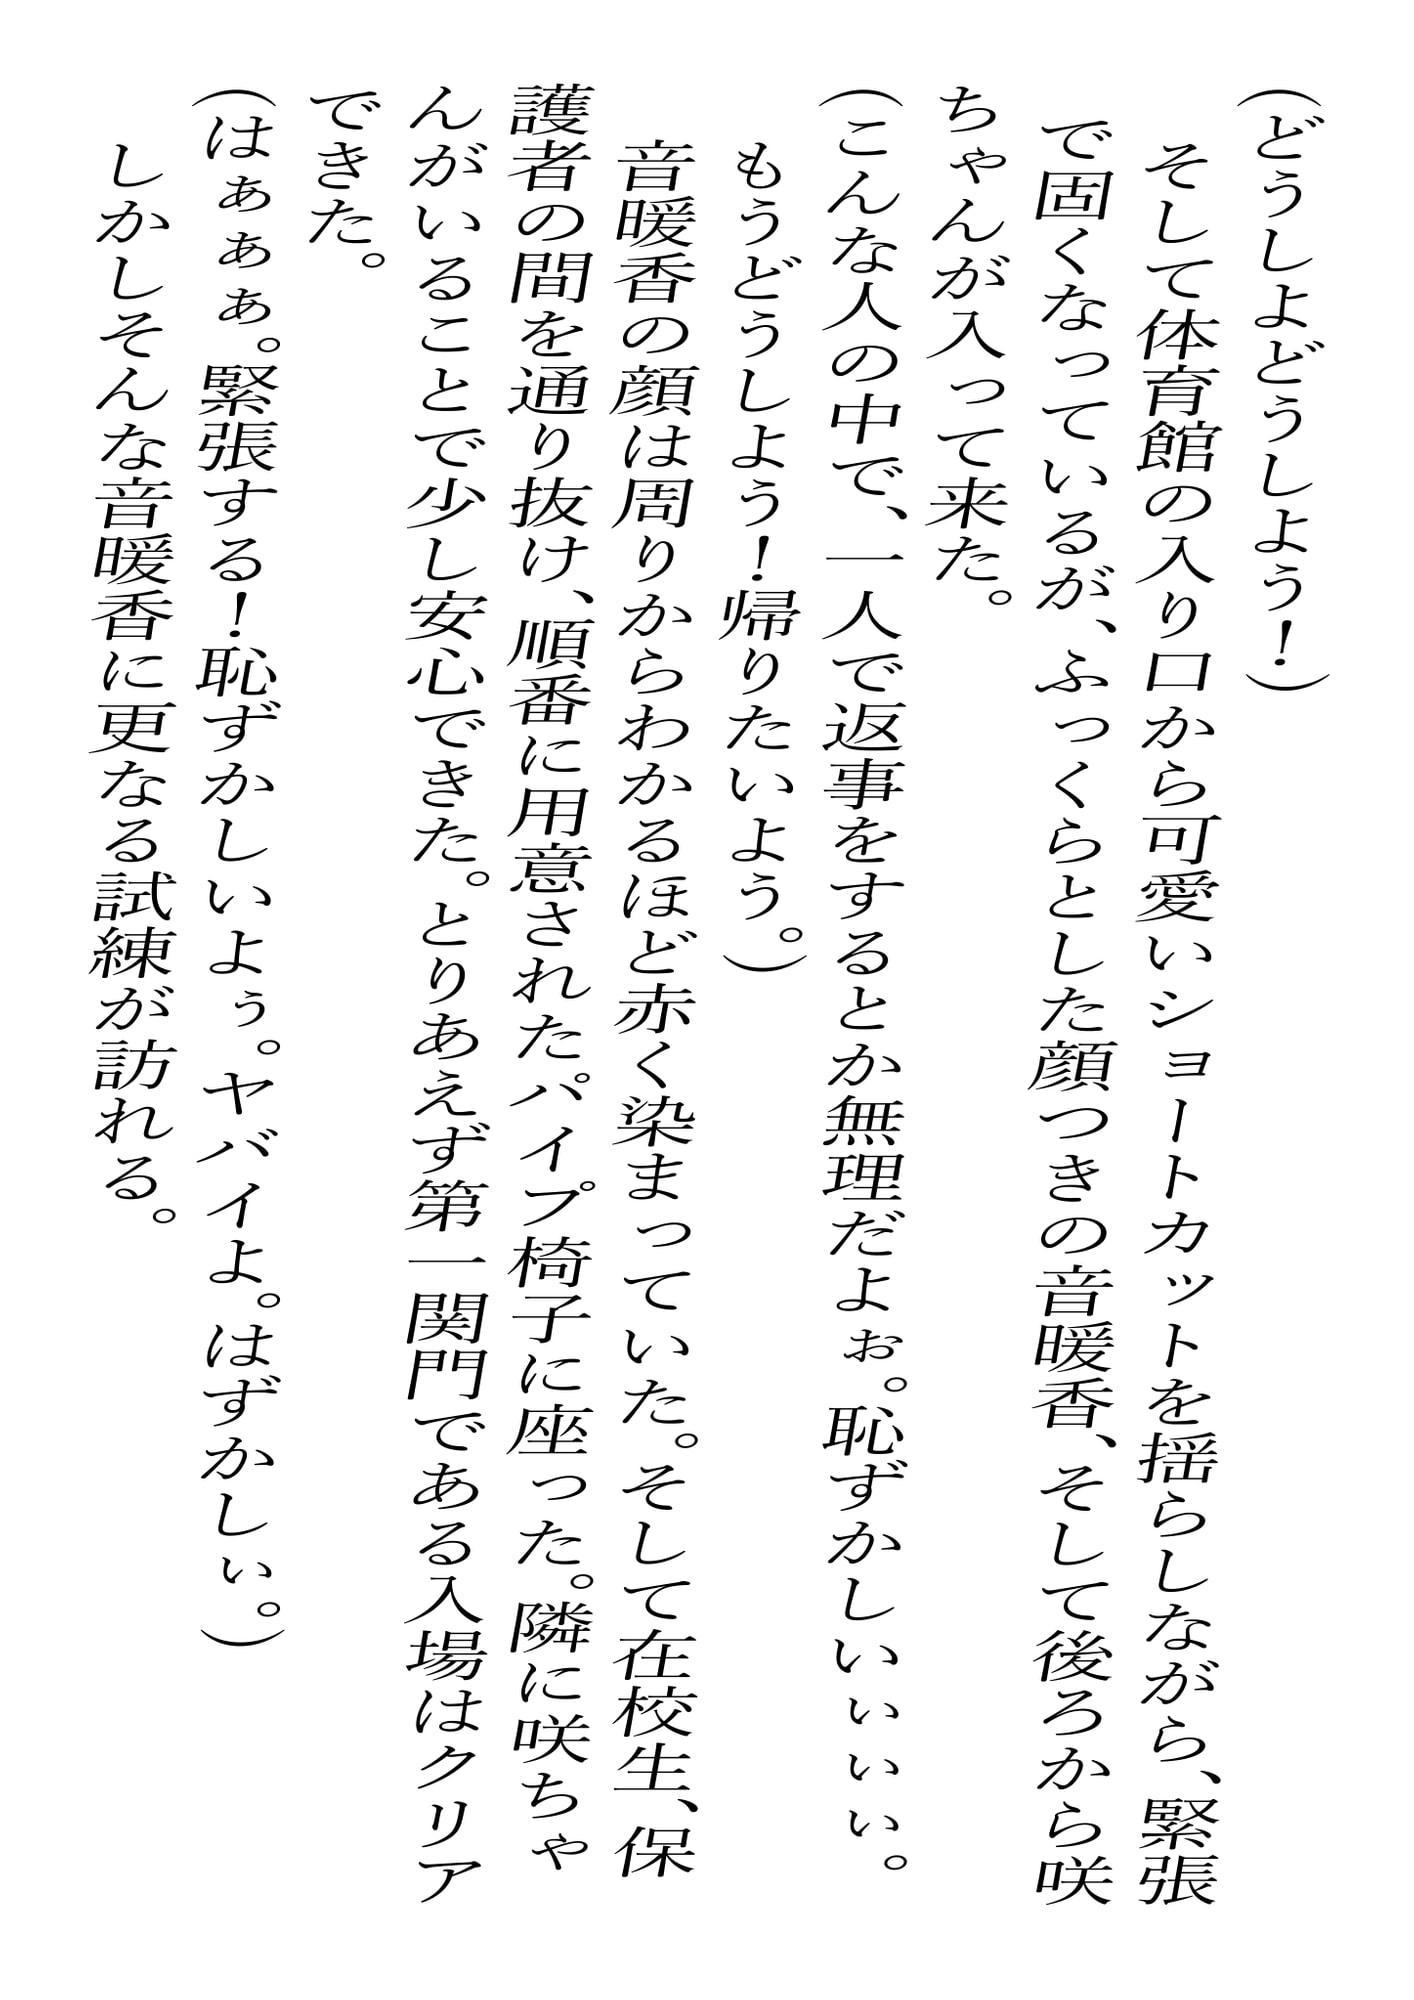 （どうしよどうしよう！）
そして体育館の入り口から可愛いショートカットを揺らしながら、緊張
で固くなっているが、ふっくらとした顔つきの音暖香、そして後ろから咲
ちゃんが入って来た。
（こんな人の中で、一人で返事をするとか無理だよぉ。恥ずかしいぃぃぃ。
もうどうしよう！帰りたいよう。）
音暖香の顔は周りからわかるほど赤く染まっていた。そして在校生、保
護者の間を通り抜け、順番に用意されたパイプ椅子に座った。隣に咲ちゃ
んがいることで少し安心できた。とりあえず第一関門である入場はクリア
できた。
（はぁぁぁ。緊張する！恥ずかしいよぅ。ヤバイよ。はずかしぃ。）
しかしそんな音暖香に更なる試練が訪れる。